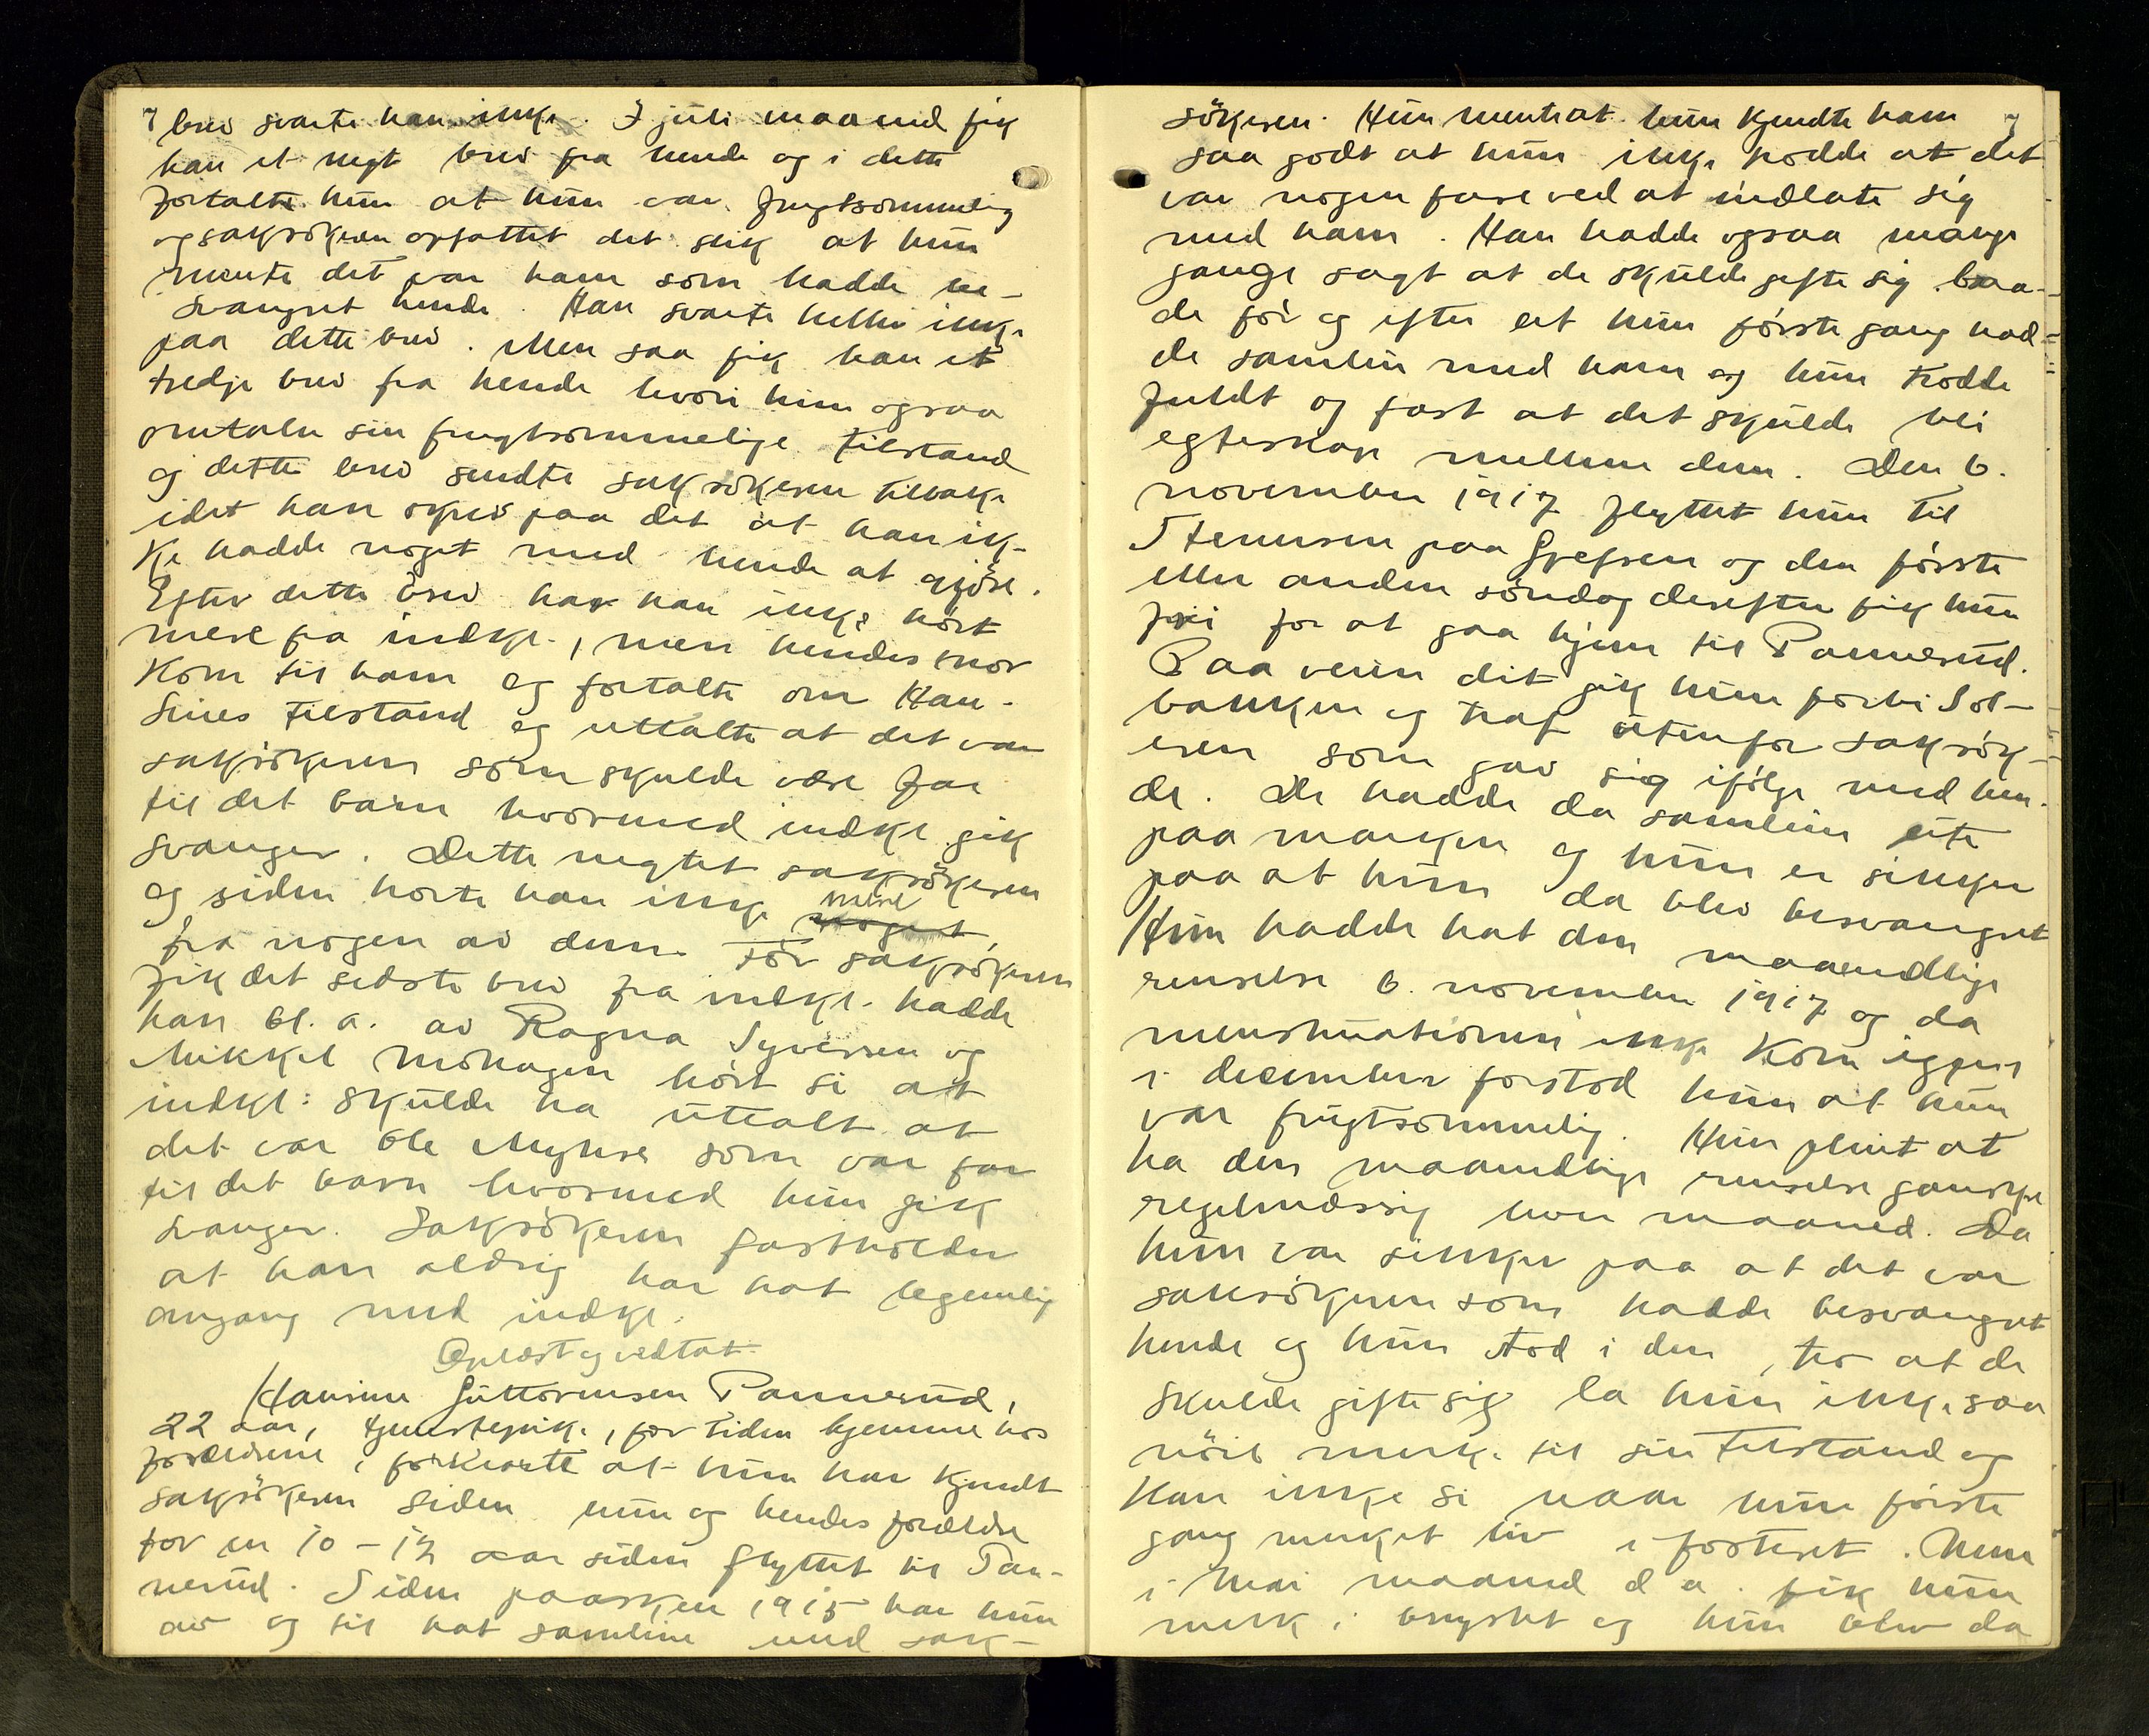 brev svarte han ikke. I juli maaned fik
han et nyt brev fra hende og i dette
fortalte hun at hun var frugtsommelig
og saksøkeren opfattet det slik at hun
mente det var ham som hadde be-
svangret hende. Han svarte heller ikke
paa dette brev. Men saa fik han et
tredje brev fra hende hvori hun ogsaa
omtaler sin frugtsommelige tilstand
og dette brev sendte saksøkeren tilbake
idet han skrev paa det at han ik-
ke hadde noget med hende at gjøre.
Efter dette brev har han ikke hørt
mere fra indkl., men hendes mor
kom til ham og fortalte om Han-
sines tilstand og uttalte at det var
saksøkeren som skulde være far
til det barn hvormed indkl. gik
svanger. Dette negtet saksøkeren
og siden hørte han ikke mere
fra nogen av dem. Før saksøkeren
fik det sidste brev fra indkl. hadde
han bl. a. av Ragna Syversen og
Mikkel Mohagen hørt si at
indkl. skulde ha uttalt at
det var Ole Myhre som var far
til det barn hvormed hun gik
svanger. Saksøkeren fastholder
at han aldrig har hat legemlig
omgang med indkl.
Oplæst og vedtat.
Hansine Guttormsen Pannerud,
22 aar, tjenestepike, for tiden hjemme hos
forældrene, forklarte at hun har kjendt
saksøkeren siden hun og hendes forældre
for en 10 - 12 aar siden flyttet til Pan-
nerud. Siden paasken 1915 har hun
av og til hat samleie med sak-
søkeren. Hun mente at hun kjendte ham
saa godt at hun ikke trodde at det
var nogen fare ved at indlate sig
med ham. Han hadde ogsaa mange
gange sagt at de skulde gifte sig baa-
de før og efter at hun første gang had-
de samleie med ham og hun trodde
fuldt og fast at det skulde bli
egteskap mellem dem. Den 6.
november 1917 flyttet hun til
Stenersen paa Grefsen og den første
eller anden søndag derefter fik hun
fri for at gaa hjem til Pannerud.
Paa veien dit gik hun forbi Sol-
bakken og traf utenfor saksøk-
eren som gav sig ifølge med hen-
de. De hadde da samleie ute
paa marken og hun er sikker
paa at hun da blev besvangret
Hun hadde hat den maanedlige
renselse 6. november 1917 og da
menstruationen ikke kom igjen
i december forstod hun at hun
var frugtsommelig. Hun pleiet at
ha den maanedlige renselse ganske
regelmæssig hver maaned. Da
hun var sikker paa at det var
saksøkeren som hadde besvangret
hende og hun stod i den tro at de
skulde gifte sig la hun ikke saa
nöie merke til sin tilstand og
kan ikke si naar hun første
gang merket liv i fosteret. Men
i mai maaned d. a. fik hun
melk i brystet og hun blev da